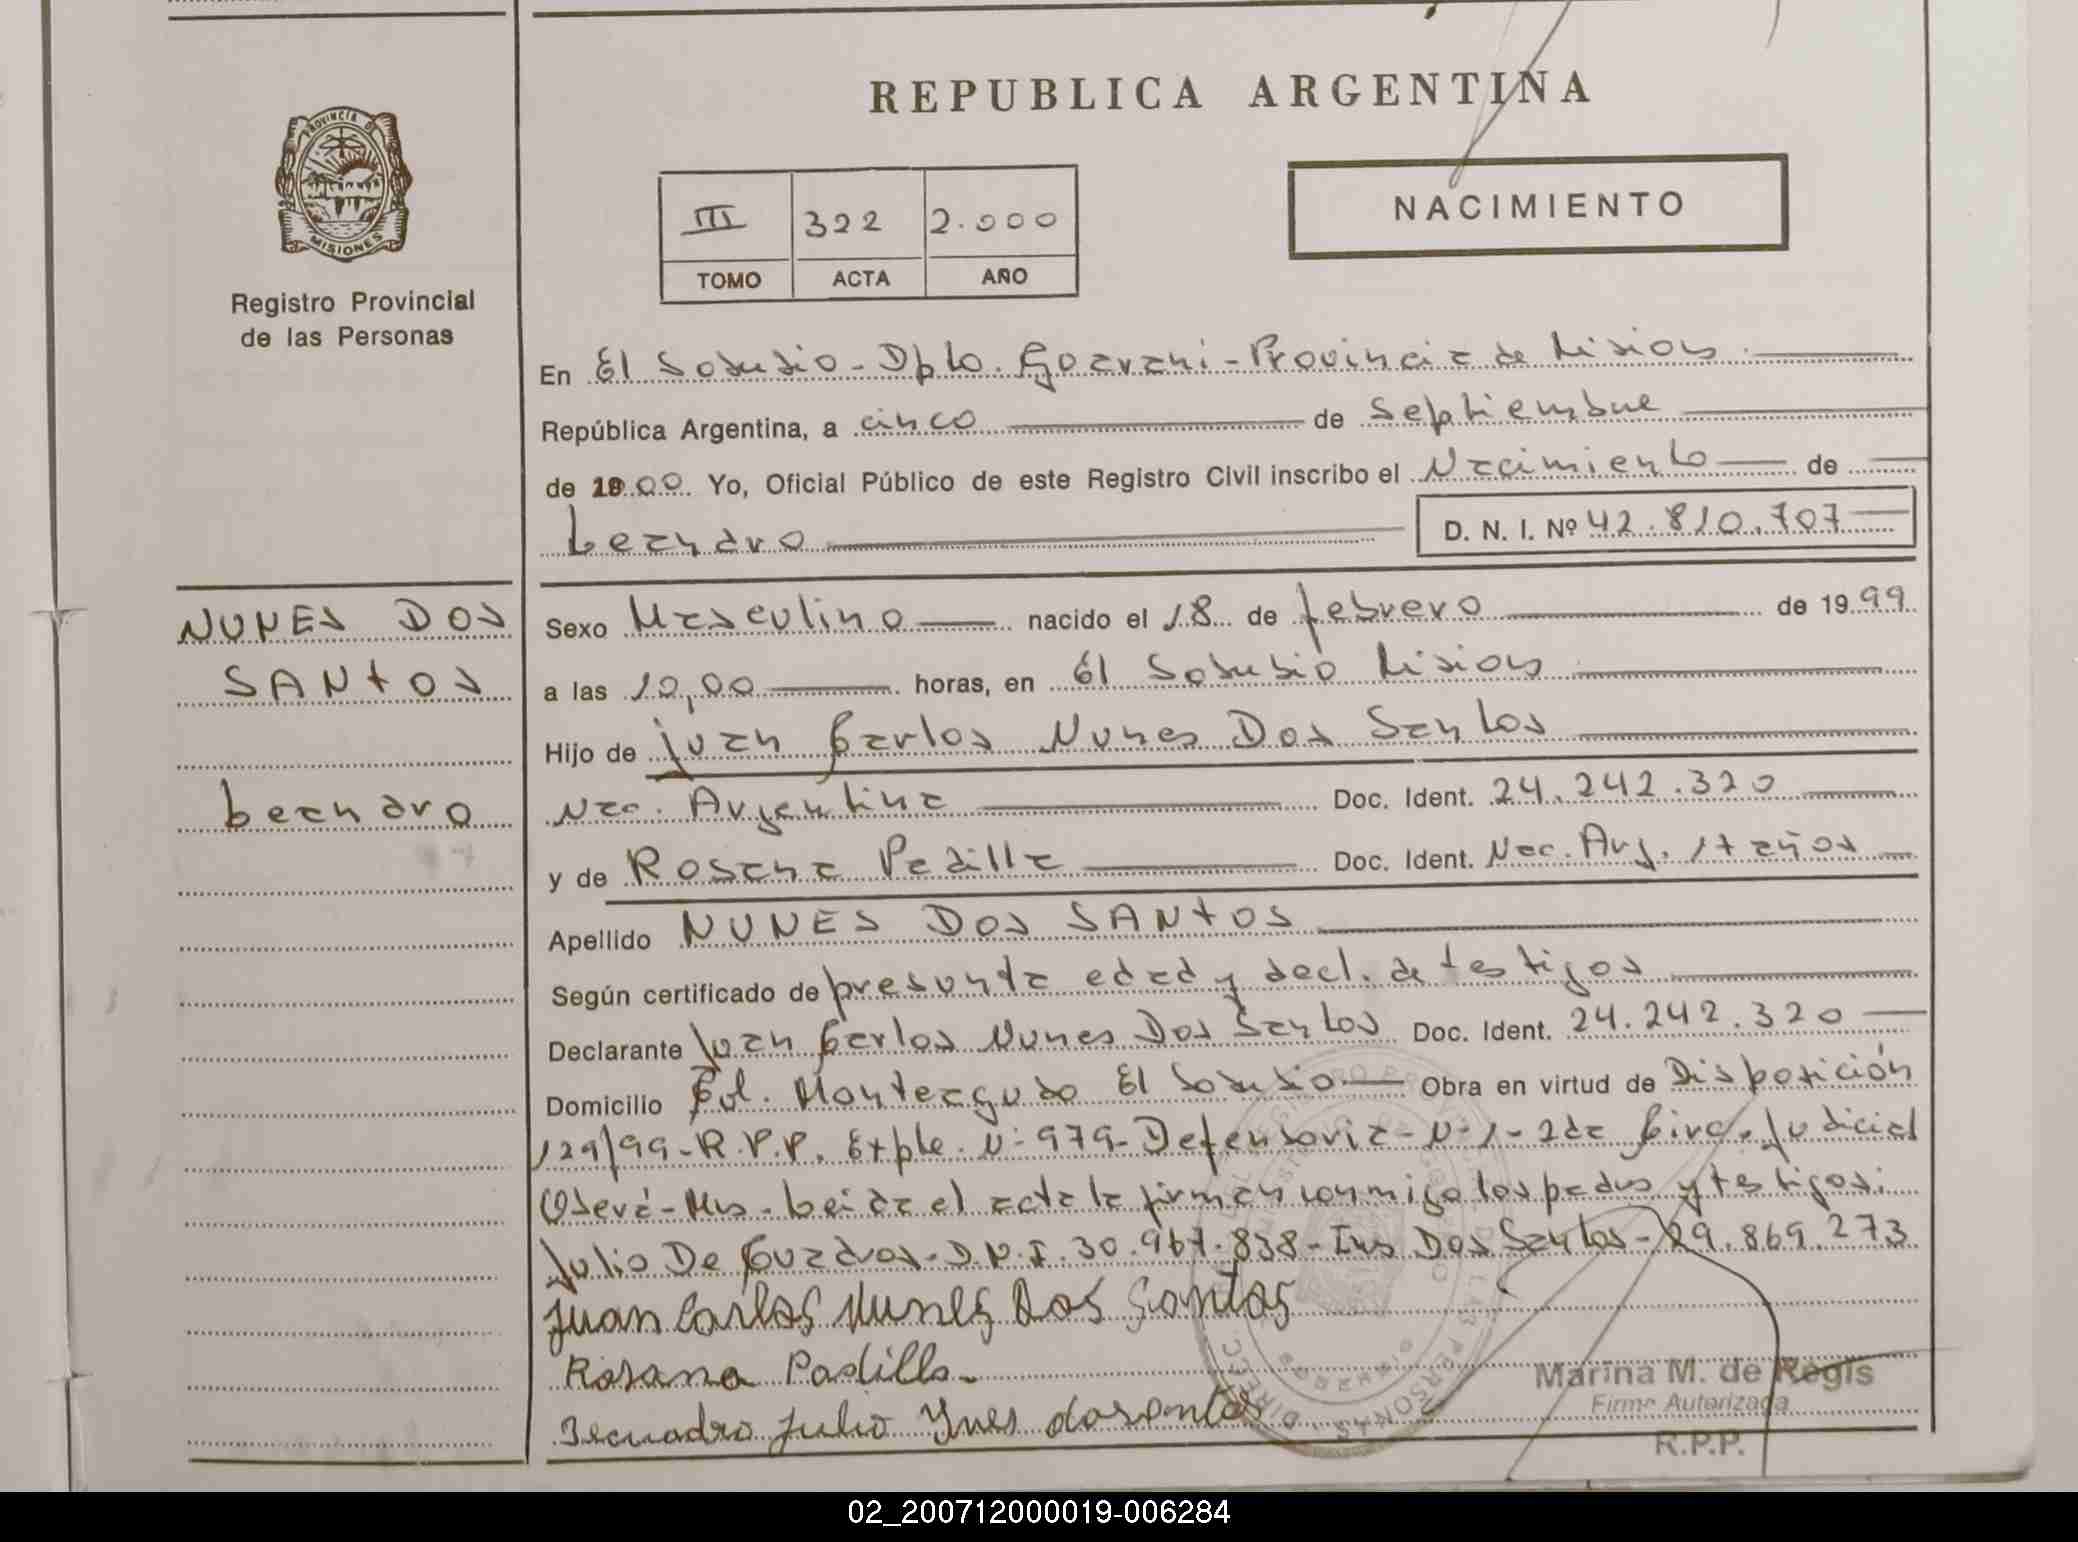 REPUBLICA ARGENTINA
PROVINCIA DE
MISIONES
Registro Provincial
de las Personas
III 322 2.000
TOMO ACTA AÑO
NACIMIENTO
En El Soberbio - Dpto. Guarani - Provincia de Misiones
República Argentina, a cinco de Septiembre
de 1900 Yo, Oficial Público de este Registro Civil inscribo el Nacimiento de
Leandro D. N. I. Nº 42.810.707
NUNES DOS
SANTOS
Leandro
Sexo Masculino nacido el 18 de febrero de 1999
a las 10,00 horas, en El Soberbio Misiones
Hijo de Juan Carlos Nunes Dos Santos
Nac. Argentina Doc. Ident. 24.242.320
y de Rosana Padilla Doc. Ident. Nac. Arg. 17 años
Apellido NUNES DOS SANTOS
Según certificado de presunta edad y decl. de testigos
Declarante Juan Carlos Nunes Dos Santos Doc. Ident. 24.242.320
Domicilio Col. Monteagudo El Soberbio Obra en virtud de Disposición
129/99 - R.P.P. Expte. Nº 979 - Defensoria - Nº 1 - 2da Circ. Judicial
Oberá - Mns. Leida el acta la firman conmigo los padres y testigos:
Julio De Cuadros - D.N.I. 30.967.838 - Ines Dos Santos - 29.869.273
Juan Carlos Nunes Dos Santos
Rosana Padilla
Decuadro Julio Ynes dosantos
Marina M. de Regis
Firma Autorizada
R.P.P.
02_200712000019-006284